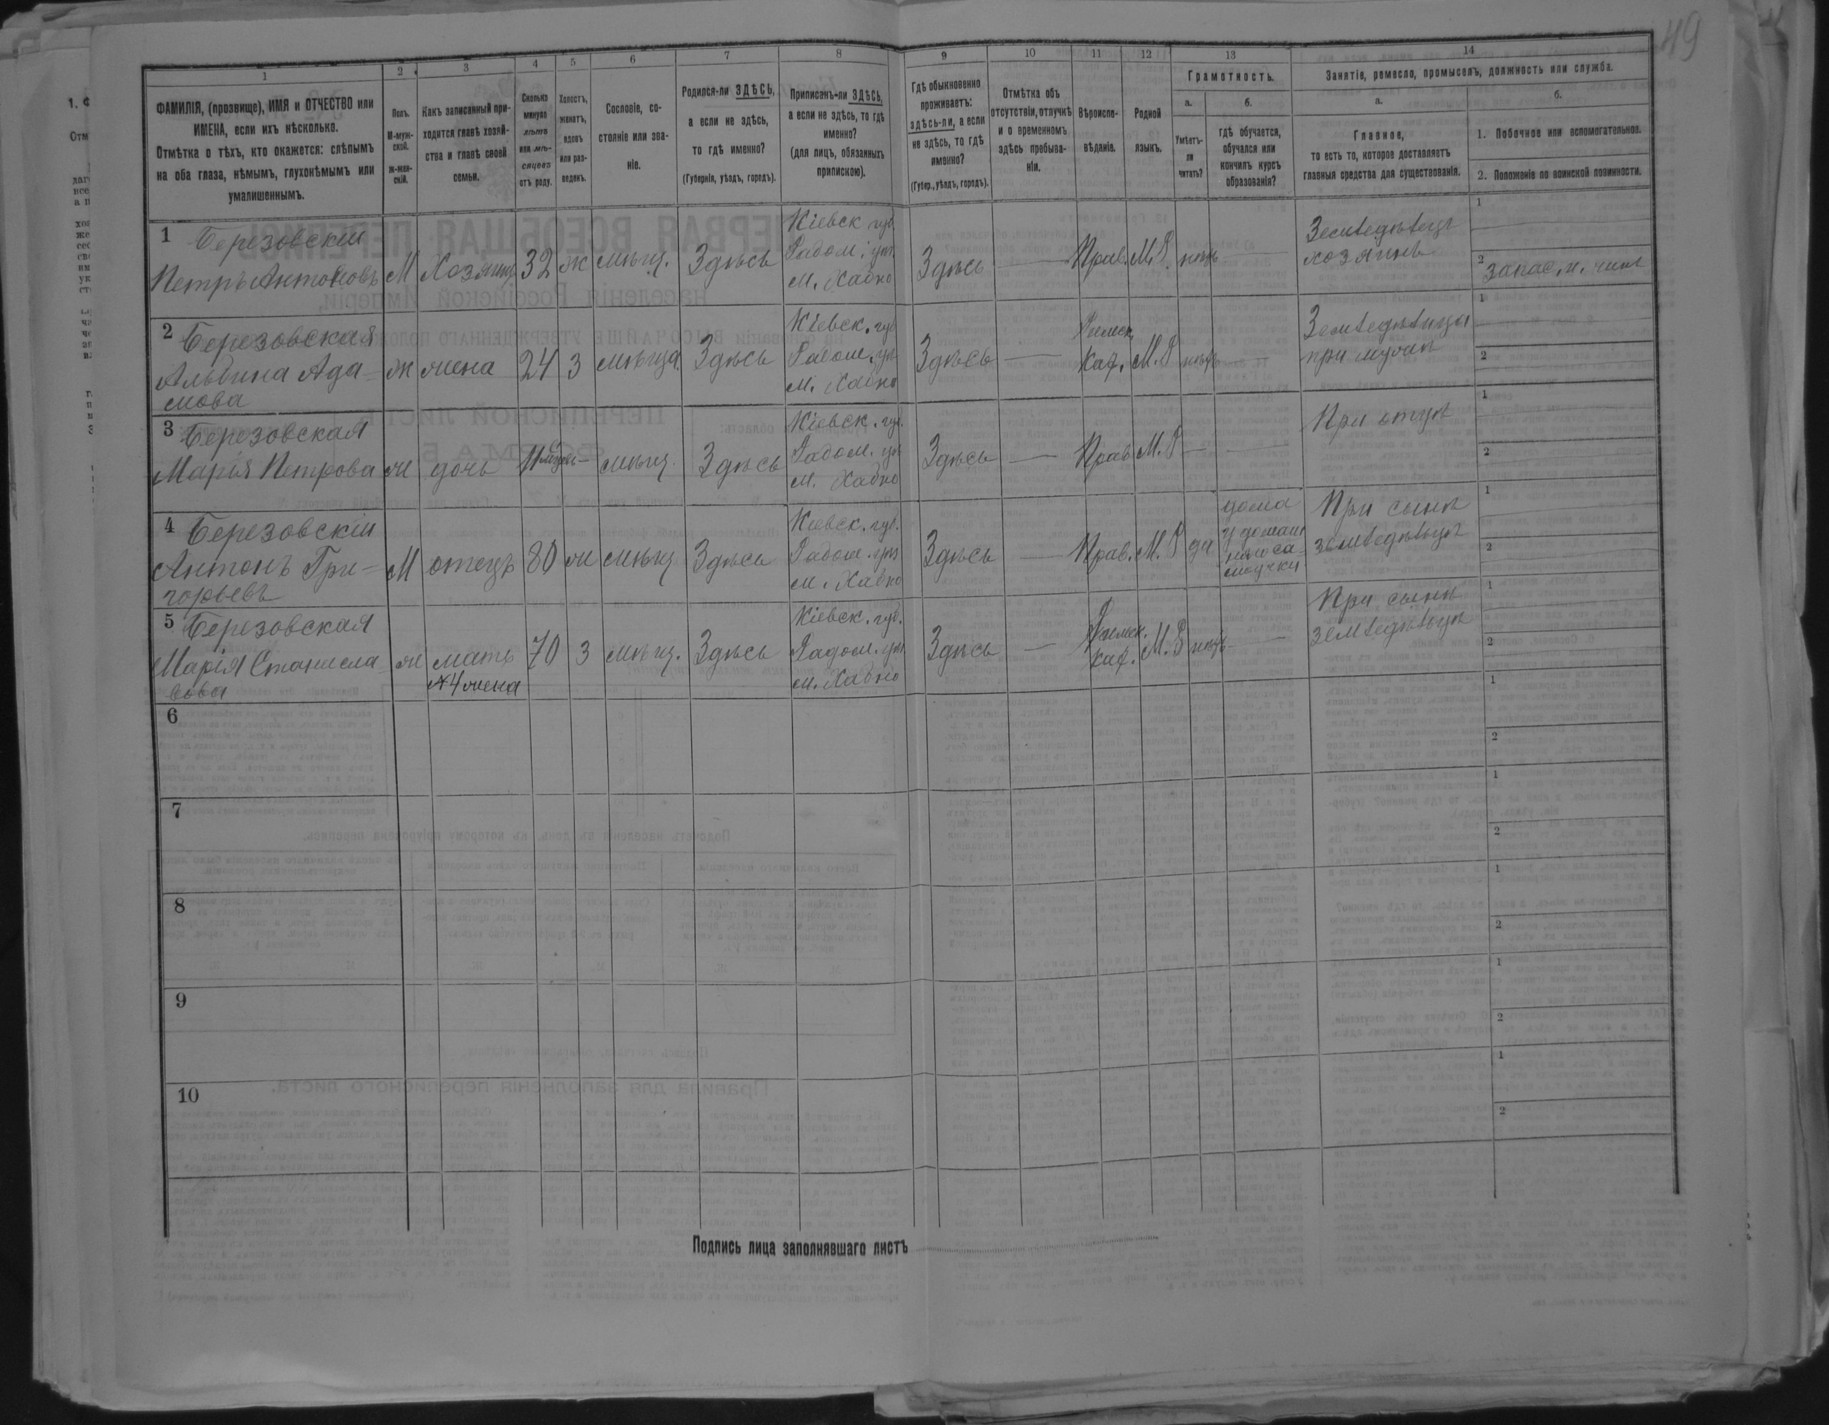 49
1
2
3
4
5
6
7
8
9
10
11
12
13
14
ФАМИЛІЯ, (прозвище), ИМЯ и ОТЧЕСТВО или
ИМЕНА, если ихъ нѣсколько.
Отмѣтка о тѣхъ, кто окажется: слѣпымъ
на оба глаза, нѣмымъ, глухонѣмымъ или
умалишеннымъ.
Полъ.
М-муж-
ской.
Ж-жен-
скій.
Какъ записанный при-
ходится главѣ хозяй-
ства и главѣ своей
семьи.
Сколько
минуло
лѣтъ
или мѣ-
сяцевъ
отъ роду.
Холостъ,
женатъ,
вдовъ
или раз-
веденъ.
Сословіе, со-
стояніе или зва-
ніе.
Родился-ли ЗДѢСЬ,
а если не здѣсь,
то гдѣ именно?
(Губернія, уѣздъ, городъ).
Приписанъ-ли ЗДѢСЬ,
а если не здѣсь, то гдѣ
именно?
(для лицъ, обязанныхъ
припискою).
Гдѣ обыкновенно
проживаетъ:
здѣсь-ли, а если
не здѣсь, то гдѣ
именно?
(Губер., уѣздъ, городъ).
Отмѣтка объ
отсутствіи, отлучкѣ
и о временномъ
здѣсь пребыва-
ніи.
Вѣроиспо-
вѣданіе.
Родной
языкъ.
Грамотность.
а.
Умѣетъ-
ли
читать?
б.
гдѣ обучается,
обучался или
кончилъ курсъ
образованія?
Занятіе, ремесло, промыселъ, должность или служба.
а.
Главное,
то есть то, которое доставляетъ
главныя средства для существованія.
б.
1. Побочное или вспомогательное.
2. Положеніе по воинской повинности.
1 Березовскій
Петръ Антоновъ М Хозяинъ 32 ж мѣщ. Здѣсь
Кіевск. губ.
Радом. уѣз.
м. Хабно
Здѣсь — Прав. М. Р. нѣтъ —
Земледѣлецъ
хозяинъ
1
2 запас. н. чинъ
2 Березовская
Альбина Ада-
мова
ж жена 24 З мѣща. Здѣсь
Кіевск. губ
Радом. уѣз
м. Хабно
Здѣсь —
Римск.
Каф. М. Р нѣтъ —
Земледѣлица
при мужѣ
1
2
3 Березовская
Марія Петрова ж дочь 11 мѣсяц. — мѣщ. Здѣсь
Кіевск. гув.
Радом. уѣз
м. Хабно
Здѣсь — Прав М. Р — —
При отцѣ
1
2
4 Березовскій
Антонъ Гри-
горьевъ
М отецъ 80 ж мѣщ. Здѣсь
Кіевск. гув.
Радом. уѣз
м. Хабно
Здѣсь — Прав. М. Р да
дома
При сынѣ
земледѣльцѣ
1
2
5 Березовская
Марія Станисла-
вова
ж мать
№4 жена
70 З мѣщ. Здѣсь
Кіевск. гув.
Радом. уѣз
м. Хабно
Здѣсь —
Римск.
Каф. М. Р нѣтъ —
При сынѣ
земледѣльцѣ
1
2
6
1
2
7
1
2
8
1
2
9
1
2
10
1
2
Подпись лица заполнявшаго листъ